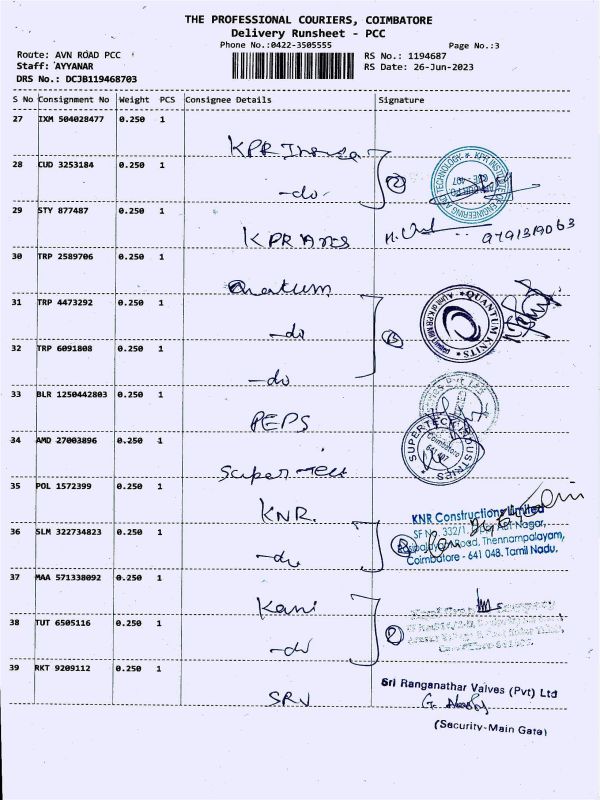 THE PROFESSIONAL COURIERS, COIMBATORE
Delivery Runsheet - PCC
Phone No.:0422-3505555
Page No.:3
Route: AVN ROAD PCC
RS No.: 1194687
Staff: AYYANAR
RS Date: 26-Jun-2023
DRS No.: DCJB119468703
S No Consignment No Weight PCS Consignee Details Signature
27 IXM 504028477 0.250 1
KPR
28 CUD 3253184 0.250 1
-do-
29 STY 877487 0.250 1
KPR Arts 9791319063
30 TRP 2589706 0.250 1
Quatum
31 TRP 4473292 0.250 1
-do
QUANTUM KNITS
32 TRP 6091808 0.250 1
-do
33 BLR 1250442803 0.250 1
PEPS
34 AMD 27003896 0.250 1
SUPERTECH INDUSTRIES
Coimbatore
641 407
Super Tech
35 POL 1572399 0.250 1
KNR.
KNR Constructions Limited
36 SLM 322734823 0.250 1
SF No. 332/1, Nagar,
Road, Thennampalayam,
Coimbatore - 641 048. Tamil Nadu.
-do
37 MAA 571338092 0.250 1
Kani
38 TUT 6505116 0.250 1
-do
39 RKT 9209112 0.250 1
SRV
Sri Ranganathar Valves (Pvt) Ltd
(Security-Main Gate)